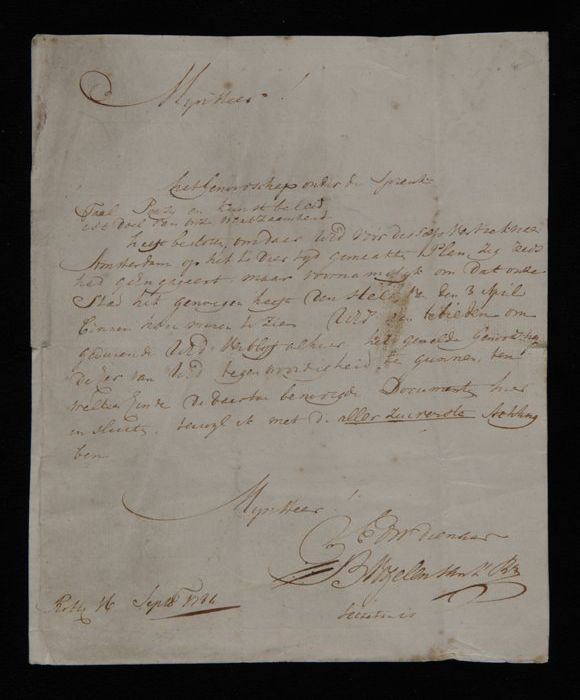 Mijn Heer!
het Genootschap onder de Spreuk
Taal Poezy en Kunst beleid
is 't doel van onze werkzaamheid
heeft besloten, omdaer UEd voor des selfs Vertrek naar
Amsterdam op het te dier tyd gemaakte Plan, zig reeds
had geëngageert, maar voornamelyk om dat onze
Stad het genoegen heeft den Held van den 3 April
binnen haar muren te zien UEd aan te bieden om
geduurende UEd Verblyf alhier het gemelde Genootschap
de Eer van UEd tegenwoordigheid te gunnen, ten
welken Einde de daartoe benodigde Documenten hier
in sluite, terwyl ik met de aller zuiverste Achting
ben
Mijn Heer!
UEdw dienaar
Secretaris
Rott. 16 Septb 1786